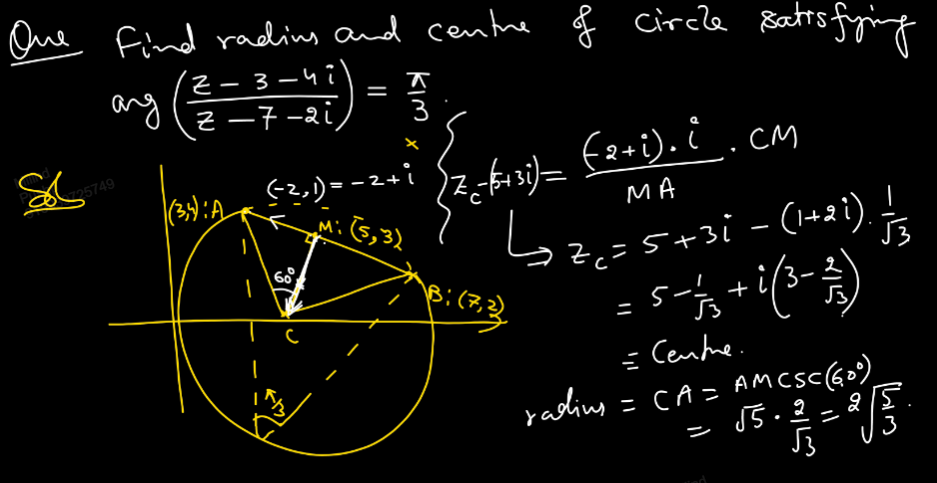 Que Find radius and centre of circle satisfying
arg ((z - 3 - 4i)/(z - 7 - 2i)) = π/3.
Sol
(-2,1) = -2+i
(3,4): A
M: (5,3)
60°
B: (7,2)
C
π/3
x
z_c - (5+3i) = ((-2+i).i)/MA . CM
↳ z_c = 5+3i - (1+2i).1/√3
= 5 - 1/√3 + i(3 - 2/√3)
= Centre.
radius = CA = AM CSC(60°)
= √5 . 2/√3 = 2√(5/3).
725749